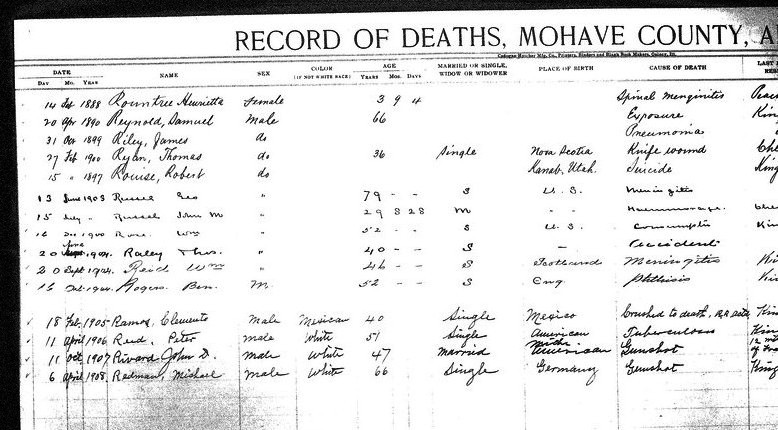 RECORD OF DEATHS, MOHAVE COUNTY, A
DATE NAME SEX COLOR (IF NOT WHITE RACE) AGE MARRIED OR SINGLE, WIDOW OR WIDOWER PLACE OF BIRTH CAUSE OF DEATH LAST
DAY MO. YEAR YEARS MOS. DAYS
14 Feb 1888 Rountree Henrietta Female 3 9 4 Spinal Menginitis
20 Apr 1890 Reynold, Samuel Male 66 Exposure
31 1899 Riley, James do Pneumonia
27 Feb 1900 Ryan, Thomas do 36 Single Nova Scotia Knife wound
15 " 1897 Robert do Kanab, Utah. Suicide
13 June 1903 Russel Geo " 79 - - S U.S. Meningitis
15 July " Russel John M " 29 8 28 M - - Haemmorage
16 Dec 1900 Rose Wm " 52 - - S U.S. Consumption
20 1904. Raley Thos. " 40 - - S - Accident
20 Sept 1904. Reid Wm " 46 - - S Scotland Meningites
16 1904. Rogers Ben. M. 52 - - S Eng Phthisis
18 Feb. 1905 Ramos, Clemente male Mexican 40 Single Mexico Crushed to death,
11 April 1906 Reed, Peter male White 51 Single American Tuberculosis
11 Oct 1907 Rivard John D. male White 47 Married American Gunshot
6 April 1908 Redman, Michael male White 66 Single Germany Gunshot